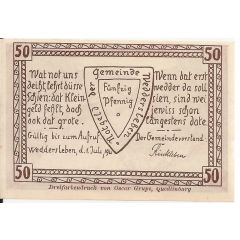 50 50
Wat not uns
deiht, lehrt dürre
Schien: dat Klein-
geld fehlt, doch
ook dat grote.
Gültig bis zum Aufruf
Weddersleben, d. 1. July
Notgeld der Gemeinde Weddersleben
Fünfzig
Pfennig
Wenn dat erst
wedder da soll
sien, sind wei
jewiss schon
längestens date
Der Gemeindevorstand
50 50
Dreifarbendruck von Oscar Grupe, Quedlinburg